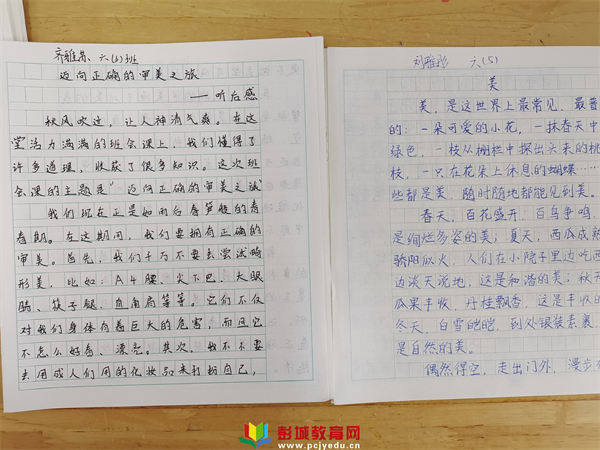 齐雅茗、六(6)班
迈向正确的审美之旅
——听后感
秋风吹过，让人神清气爽。在这
堂活力满满的班会课上，我们懂得了
许多道理，收获了很多知识。这次班
会课的主题是“迈向正确的审美之旅”
我们现在正是如雨后春笋般的青
春期。在这期间，我们要拥有正确的
审美。首先，我们千万不要去尝试畸
形美，比如：A4腰、尖下巴、大眼
睛、筷子腿、直角肩等等。它们不仅
对我们身体有着巨大的危害，而且它
不怎么好看、漂亮。其次，我不不要
去用成人们用的化妆品来打扮自己，
刘雅彤 六(5)
美
美，是这世界上最常见，最普
的：一朵可爱的小花，一抹春天中
绿色，一枝从栅栏中探出六来的桃
枝，一只在花朵上休息的蝴蝶……
些都是美，随时随地都能见到美。
春天，百花盛开，百鸟争鸣，
是绚烂多姿的美；夏天，西瓜成熟
骄阳似火，人们在小院子里边吃西
边谈天说地，这是和谐的美；秋天
瓜果丰收，丹桂飘香，这是丰收的
冬天，白雪皑皑，到处银装素裹，
是自然的美。
偶然得空，走出门外，漫步在
彭城教育网
www.pcjyedu.cn